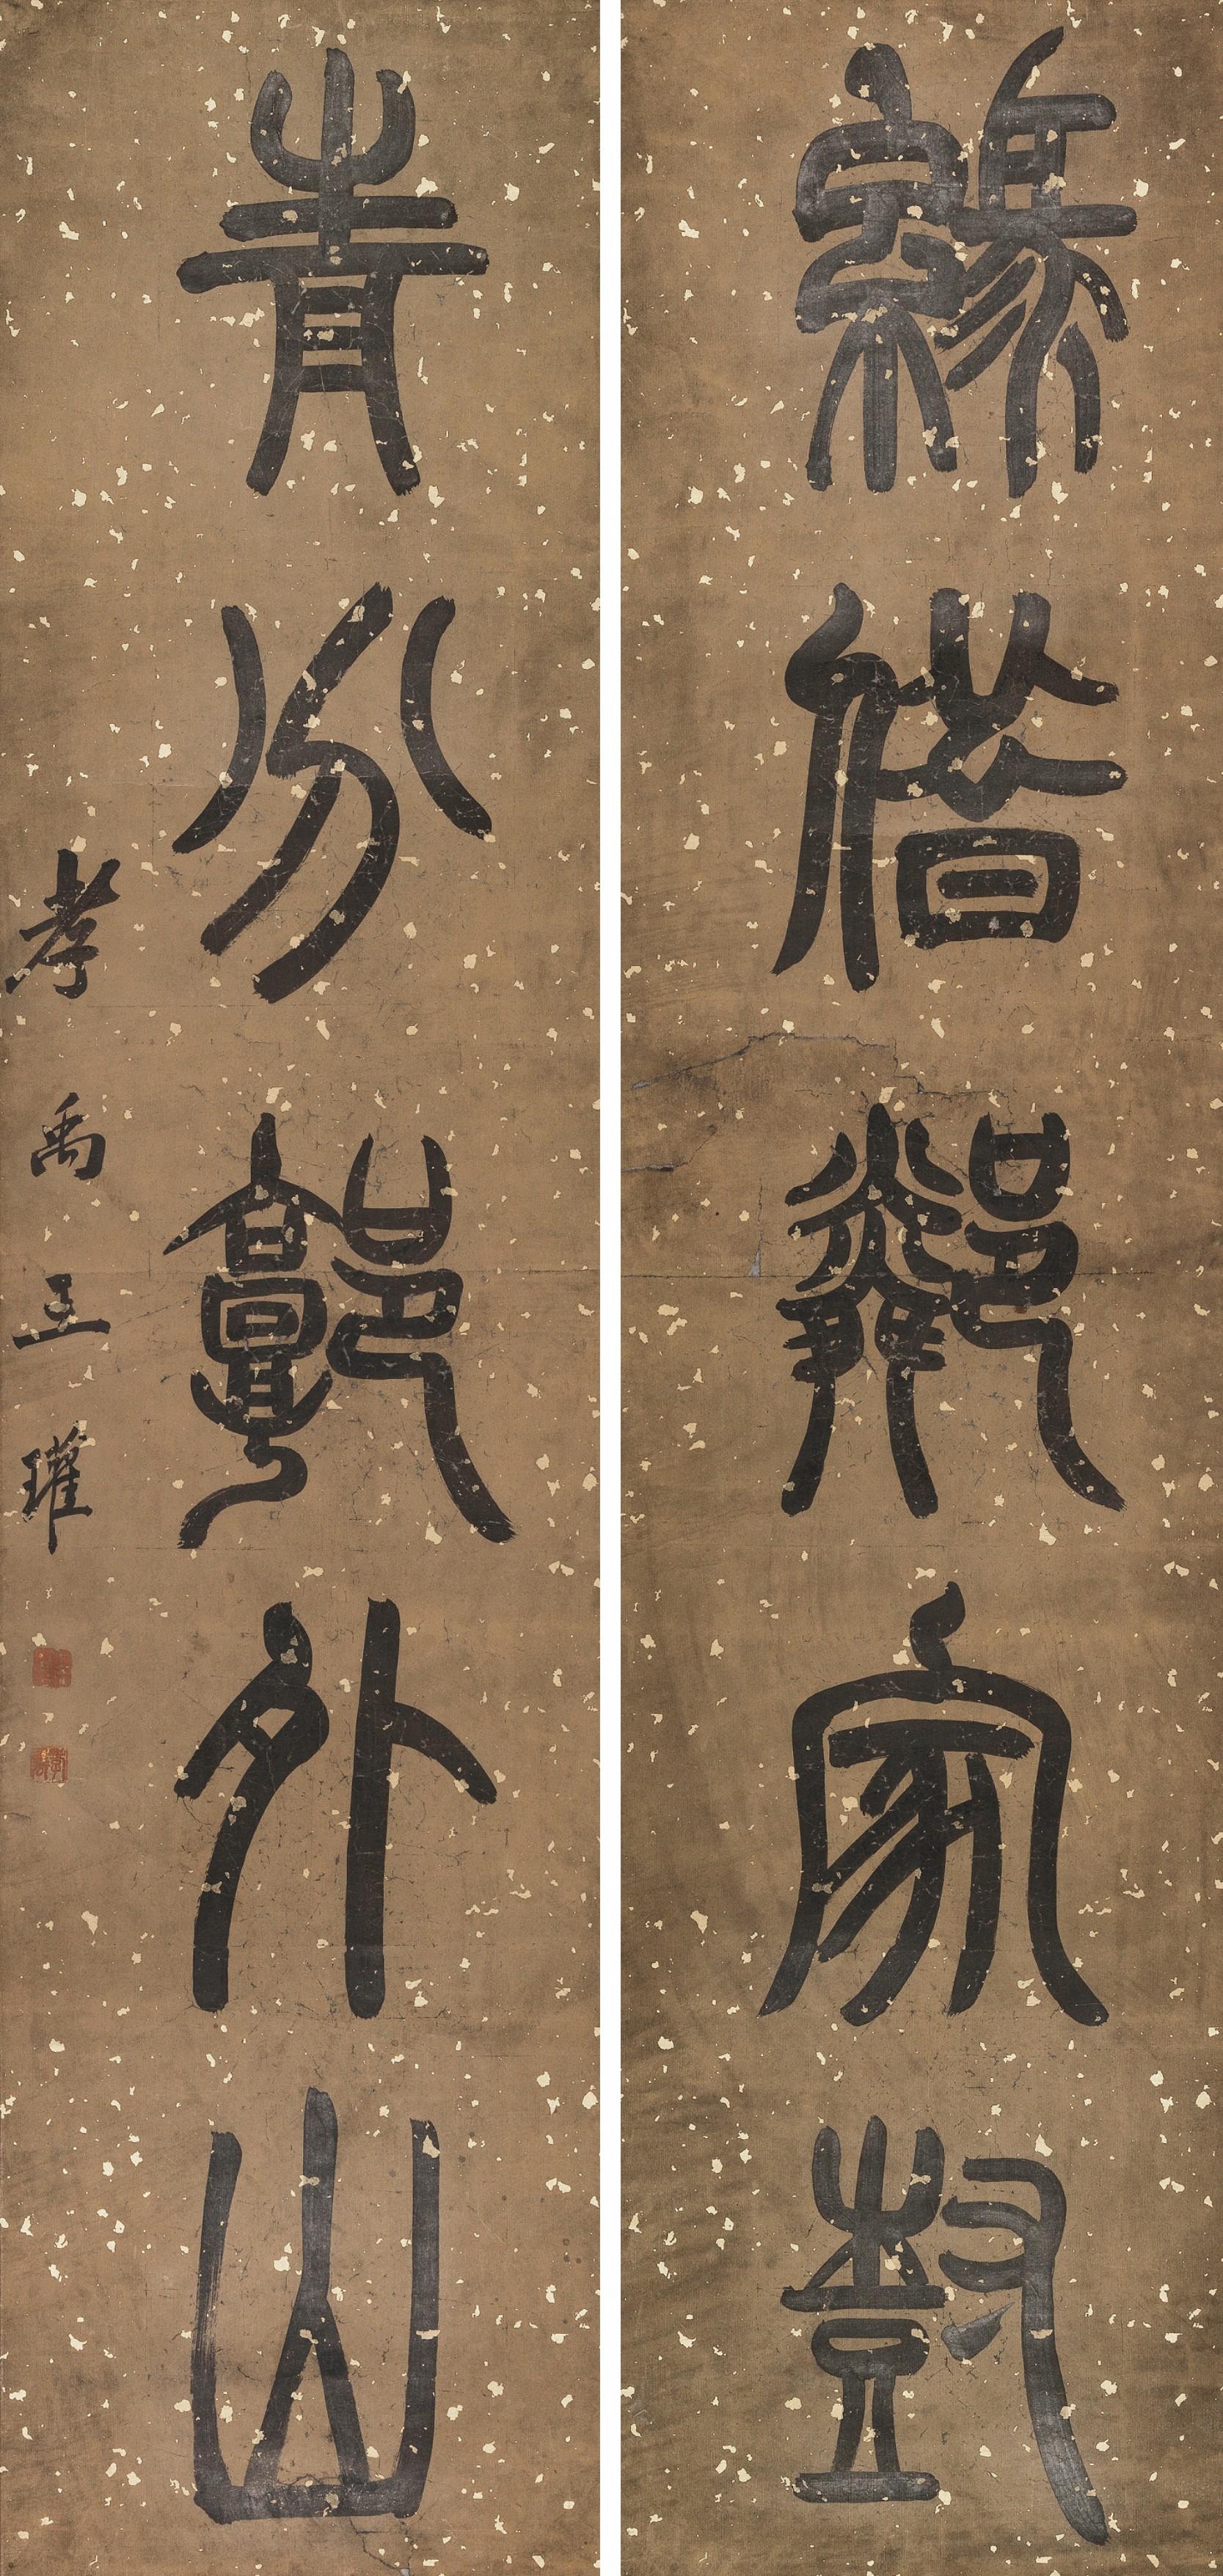 綠借鄰家樹
青分郭外山
孝禹王瓘